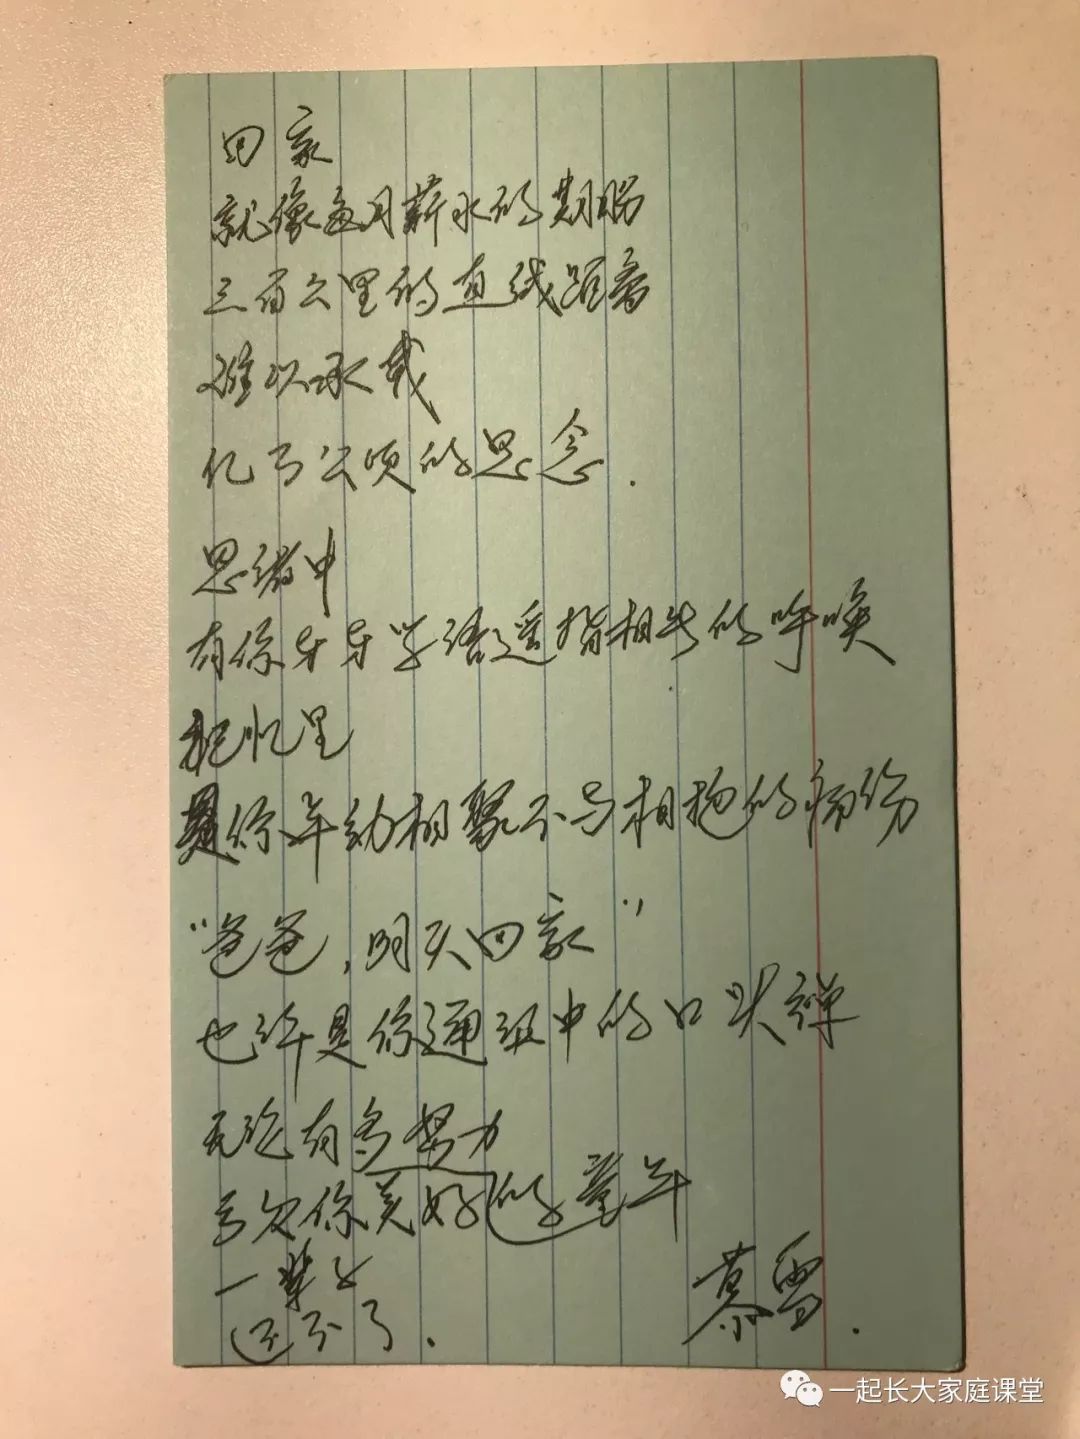 回家
就像每月薪水的期盼
三百公里的直线距离
难以承载
亿万公顷的思念.
思绪中
有你牙牙学语遥指相片的呼唤
记忆里
是你年幼相聚不与相抱的
"爸爸,明天回家"
也许是你通话中的口头禅
无论有多努力
亏欠你美好的童年
一辈子
还不了.
慕雪.
一起长大家庭课堂